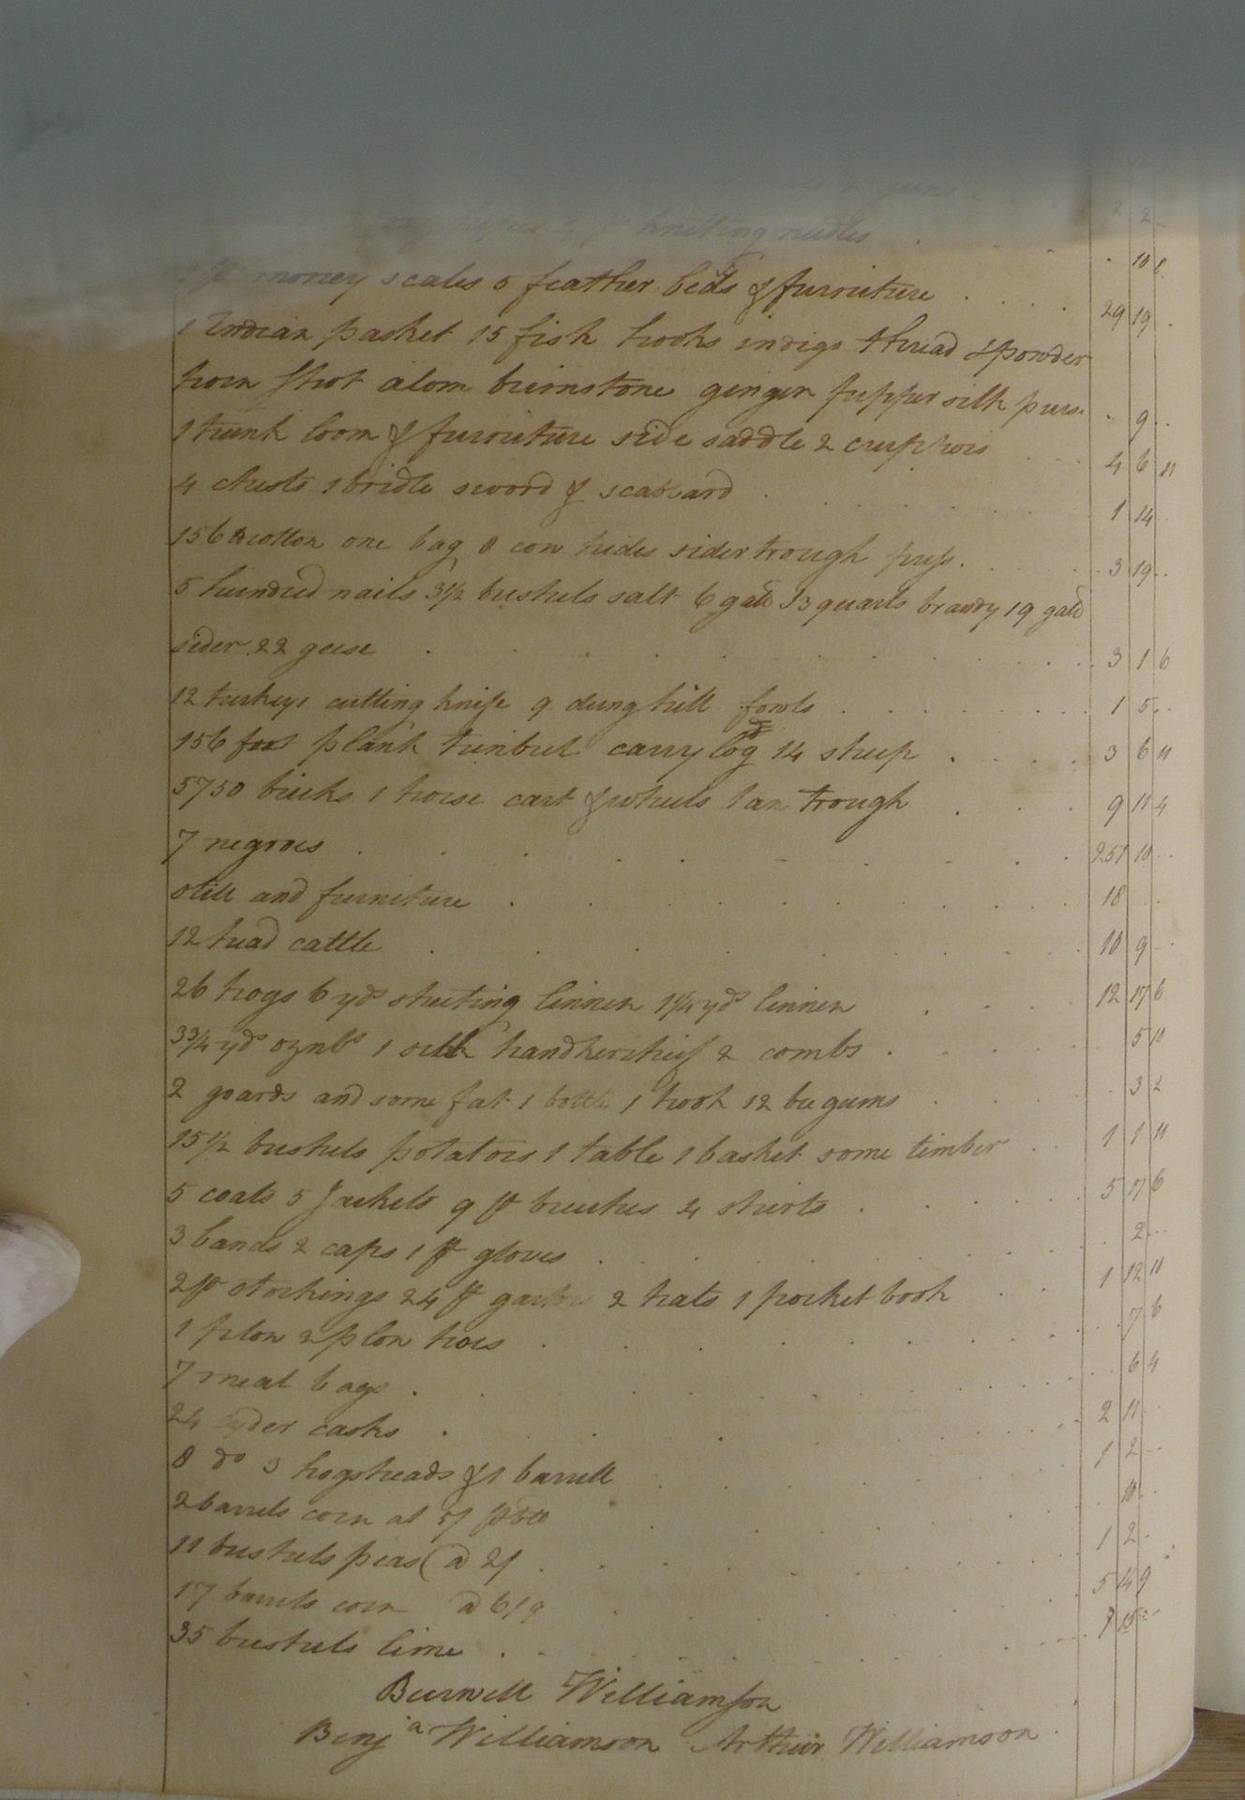 knitting needles . 2 2
money scales 5 feather beds & furniture . . . . 29 19 .
1 Indian basket 15 fish hooks indigo thread & powder
horn shot alom brimstone ginger pepper silk purse . 9 . .
1 trunk loom & furniture side saddle 2 . . . 4 6 11
4 chests 1 bridle sword & scabbard . . . . . . 1 14
156 ℔ cotton one bag 8 cow hides sider trough press . . . . 3 19 . .
5 hundred nails 3½ bushels salt 6 galls 3 quarts brandy 19 galls
sider 22 geese . . . . . . . . . 3 1 6
12 turkeys cutting knife 9 dunghill fowls . . . . . . . 1 5 . .
156 foot plank tumbrel carry log 14 sheep . . . . 3 6 11
5750 bricks 1 horse cart & wheels tan trough . . . 9 11 4
7 negroes . . . . . . . . 251 10 . .
still and furniture . . . . . . . . . 18 . .
12 head cattle . . . . . . . . 10 9 . .
26 hogs 6 yds sheeting linnen 1¼ yds linnen . . . 12 17 6
3¾ yds oznbs 1 silk handkerchief 2 combs . . . . . 5 11
2 goards and some fat 1 bottle 1 hook 12 bee gums . . . . 3 2
15½ bushels potatoes 1 table 1 basket some timber . . 1 1 11
5 coats 5 Jackets 9 pr breeches 4 shirts . . . . 5 17 6
3 bands 2 caps 1 pr gloves . . . . . . . 2 . .
2 pr stockings 24 pr garters 2 hats 1 pocket book . . . 1 12 11
1 plow 2 plow hoes . . . . . . . . 7 6
7 meal bags . . . . . . . . 6 4
24 syder casks . . . . . . . . 2 11
8 do 3 hogsheads & 1 barrell . . . . . . 1 2
2 barrels corn at 5/ pr bll . . . . . 10
11 bushels peas @ 2/ . . . . . . . . 1 2 .
17 barrels corn @ 6/9 . . . . . . 5 14 9
35 bushels lime . . . . . . . . 7 15
Burwell Williamson
Benja Williamson Arthur Williamson .